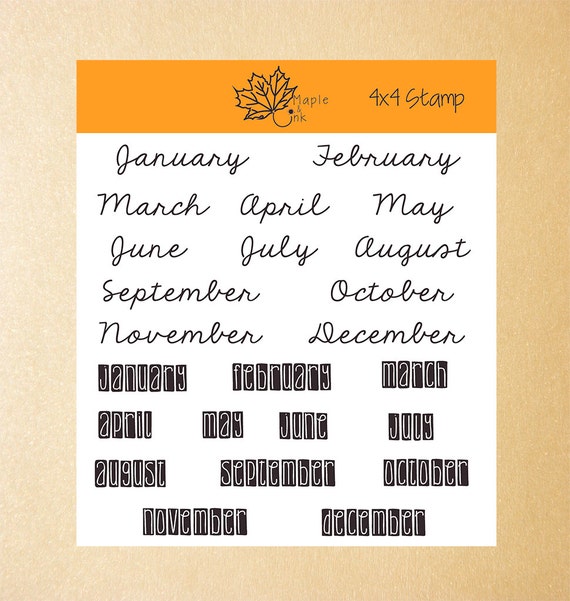 Maple & Ink 4x4 Stamp
January February
March April May
June July August
September October
November December
january february march
april may june july
august september october
november december